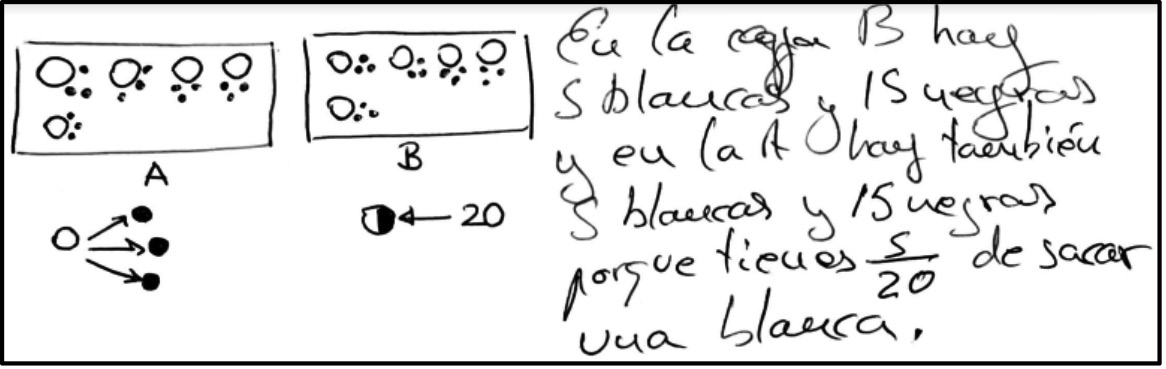 A
B
20
En la caja B hay
5 blancas y 15 negras
y en la A hay también
5 blancas y 15 negras
porque tienes 5/20 de sacar
una blanca.